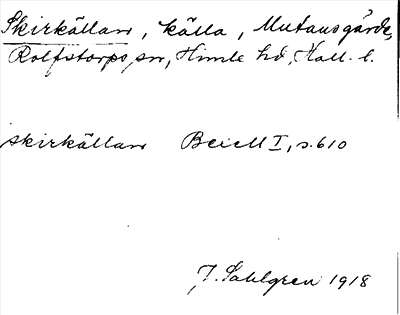 Skirkällan, källa, Mutansgårde,
Rolfstorps sn, Himle hd, Hall. l.
skirkällan BeiEll I, s. 610
J. Sahlgren 1918